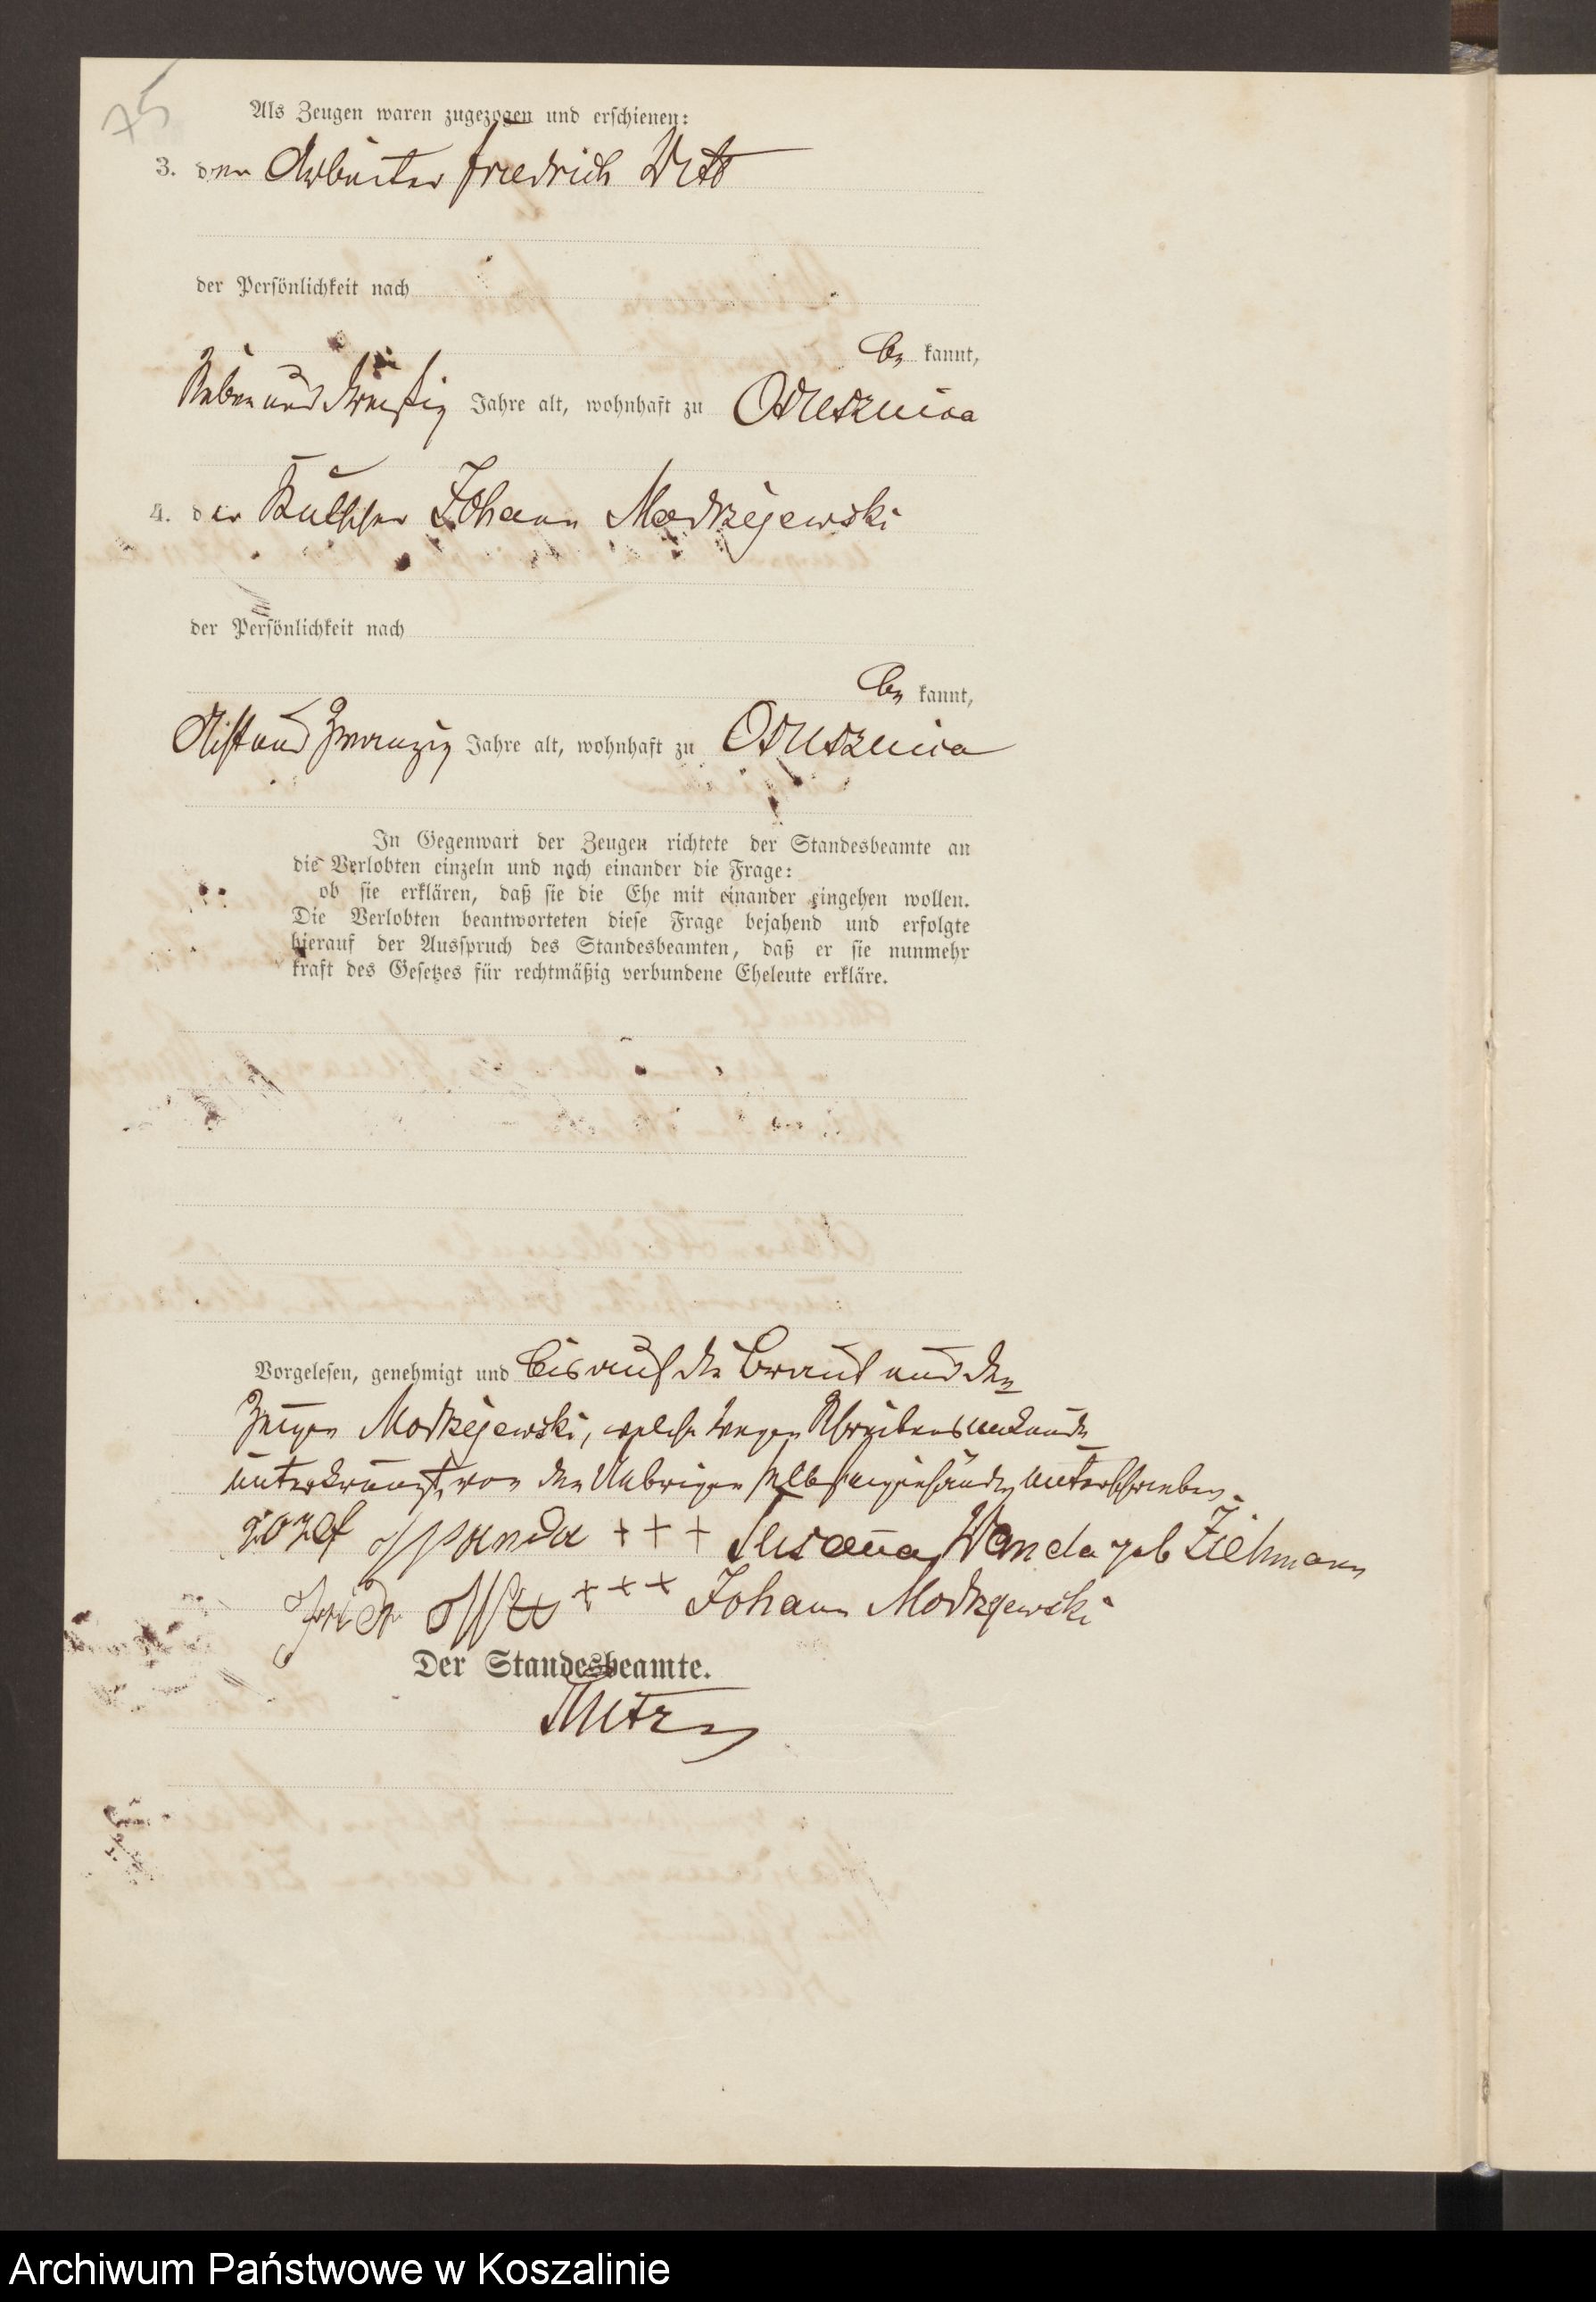 75
Als Zeugen waren zugezogen und erschienen:
3. der Arbeiter Friedrich Witt
der Persönlichkeit nach
be kannt,
Sieben und dreißig Jahre alt, wohnhaft zu Osusznica
4. der Kutscher Johann Modrzejewski
der Persönlichkeit nach
be kannt,
Acht und zwanzig Jahre alt, wohnhaft zu Osusznica
In Gegenwart der Zeugen richtete der Standesbeamte an
die Verlobten einzeln und nach einander die Frage:
ob sie erklären, daß sie die Ehe mit einander eingehen wollen.
Die Verlobten beantworteten diese Frage bejahend und erfolgte
hierauf der Ausspruch des Standesbeamten, daß er sie nunmehr
kraft des Gesetzes für rechtmäßig verbundene Eheleute erkläre.
Vorgelesen, genehmigt und bis auf die Braut und den
Zeugen Modrzejewski, welche wegen Schreibensunkunde
unterkreuzt, von den Uebrigen selbst eigenhändig unterschrieben.
+++ Wanda geb Ziehmann
Fridr Witt +++ Johann Modrzejewski
Der Standesbeamte.
Archiwum Państwowe w Koszalinie